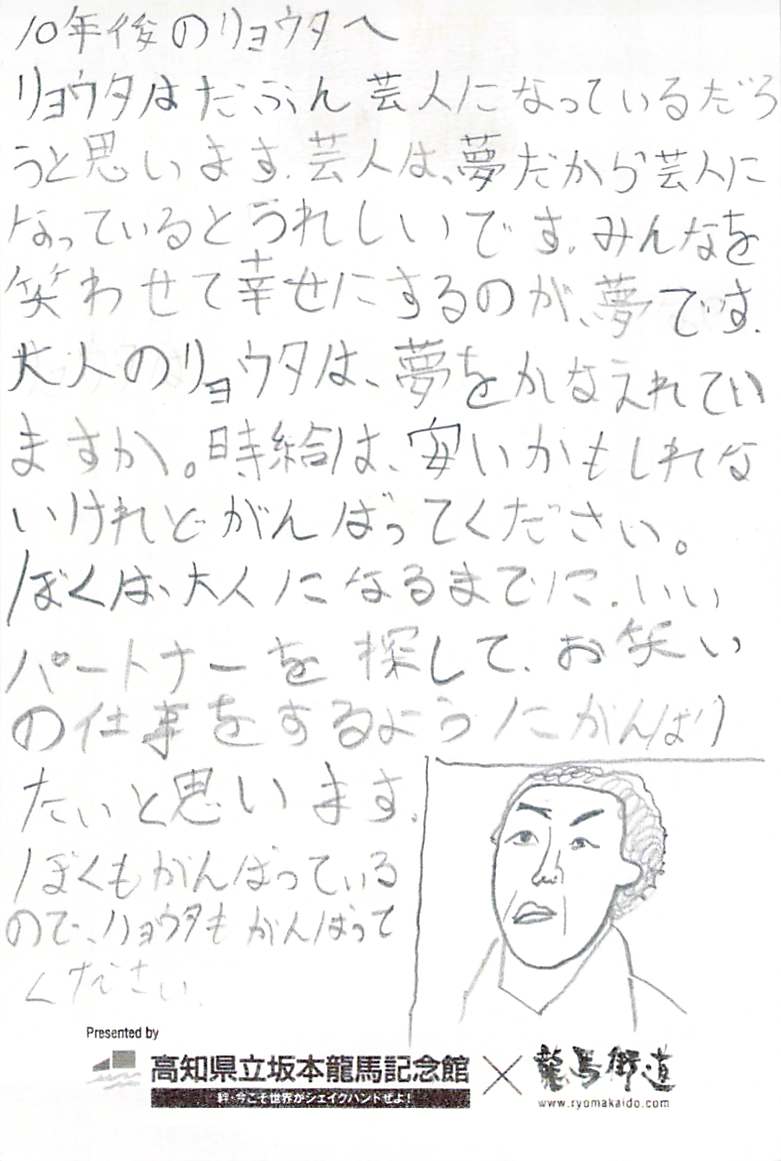 10年後のリョウタへ
リョウタはたぶん芸人になっているだろ
うと思います.芸人は、夢だから芸人に
なっているとうれしいです.みんなを
笑わせて幸せにするのが、夢です.
大人のリョウタは、夢をかなえれてい
ますか。時給は、安いかもしれな
いけれどがんばってください。
ぼくは、大人になるまでに.いい
パートナーを探して、お笑い
の仕事をするようにがんばり
たいと思います.
ぼくもがんばっている
ので、リョウタもがんばって
ください.
Presented by
高知県立坂本龍馬記念館×龍馬街道
絆・今こそ世界がシェイクハンドぜよ!
www.ryomakaido.com